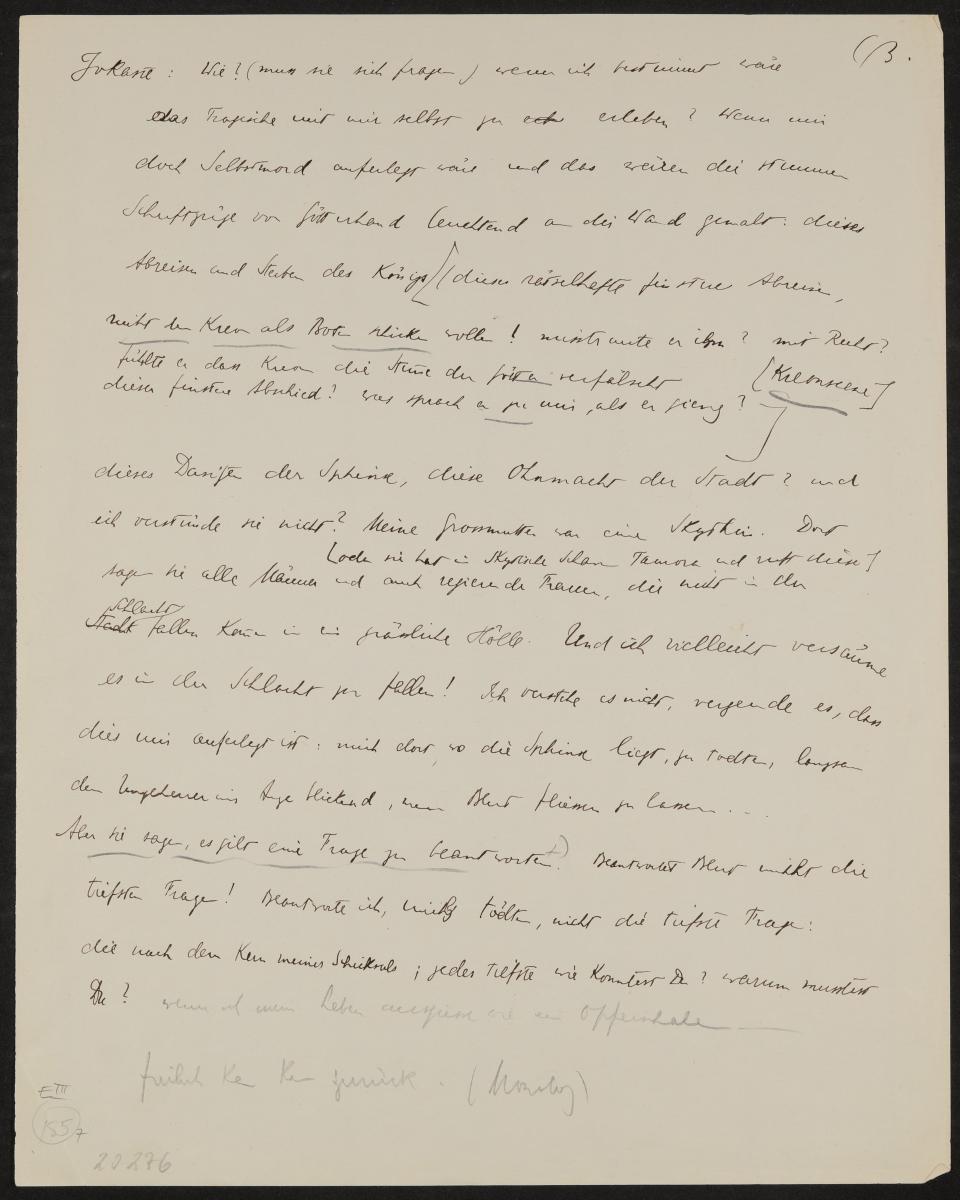 (β.
Jokaste: Wie? (muss sie sich fragen) wenn ich bestimmt wäre
das Tragische mit mir selbst zu erleben? Wenn mir
doch Selbstmord auferlegt wäre und das wären die stummen
Schriftzüge von Götterhand leuchtend an die Wand gemalt: dieses
Abreisen und Sterben des Königs (dieses rätselhafte finstere Abreisen,
nicht den Kreon als Boten schicken wollen! misstraute er ihm? mit Recht?
fühlte er dass Kreon die Stimme der Götter verfälscht [Kreonscene]
dieser finstere Abschied! was sprach er zu mir, als er gieng?
dieses Dasitzen der Sphinx, diese Ohnmacht der Stadt? und
ich verstünde sie nicht? Meine Grossmutter war eine Skythin. Dort
[oder sie hat eine Skytische Sclavin Tamora und ruft diese]
sagen sie alle Männer und auch regierende Frauen, die nicht in der
Schlacht
Stadt fallen kommen in eine grässliche Hölle. Und ich vielleicht versäume
es in der Schlacht zu fallen! Ich verstehe es nicht, vergeude es, dass
dies mir auferlegt ist: mich dort, wo die Sphinx liegt, zu tödten, langsam
dem Ungeheuer ins Auge blickend, mein Blut fliessen zu lassen...
Aber sie sagen, es gilt eine Frage zu beantworten). Beantwortet Blut nicht die
tiefsten Fragen! Beantworte ich, mich tödten, nicht die tiefste Frage:
die nach dem Kern meines Schicksals; jedes tiefste wie konntest Du? warum musstest
Du? wenn ich mein Leben ausgiesse wie eine Opferschale
freilich kein zurück. (Monolog)
E III
155
7
20276